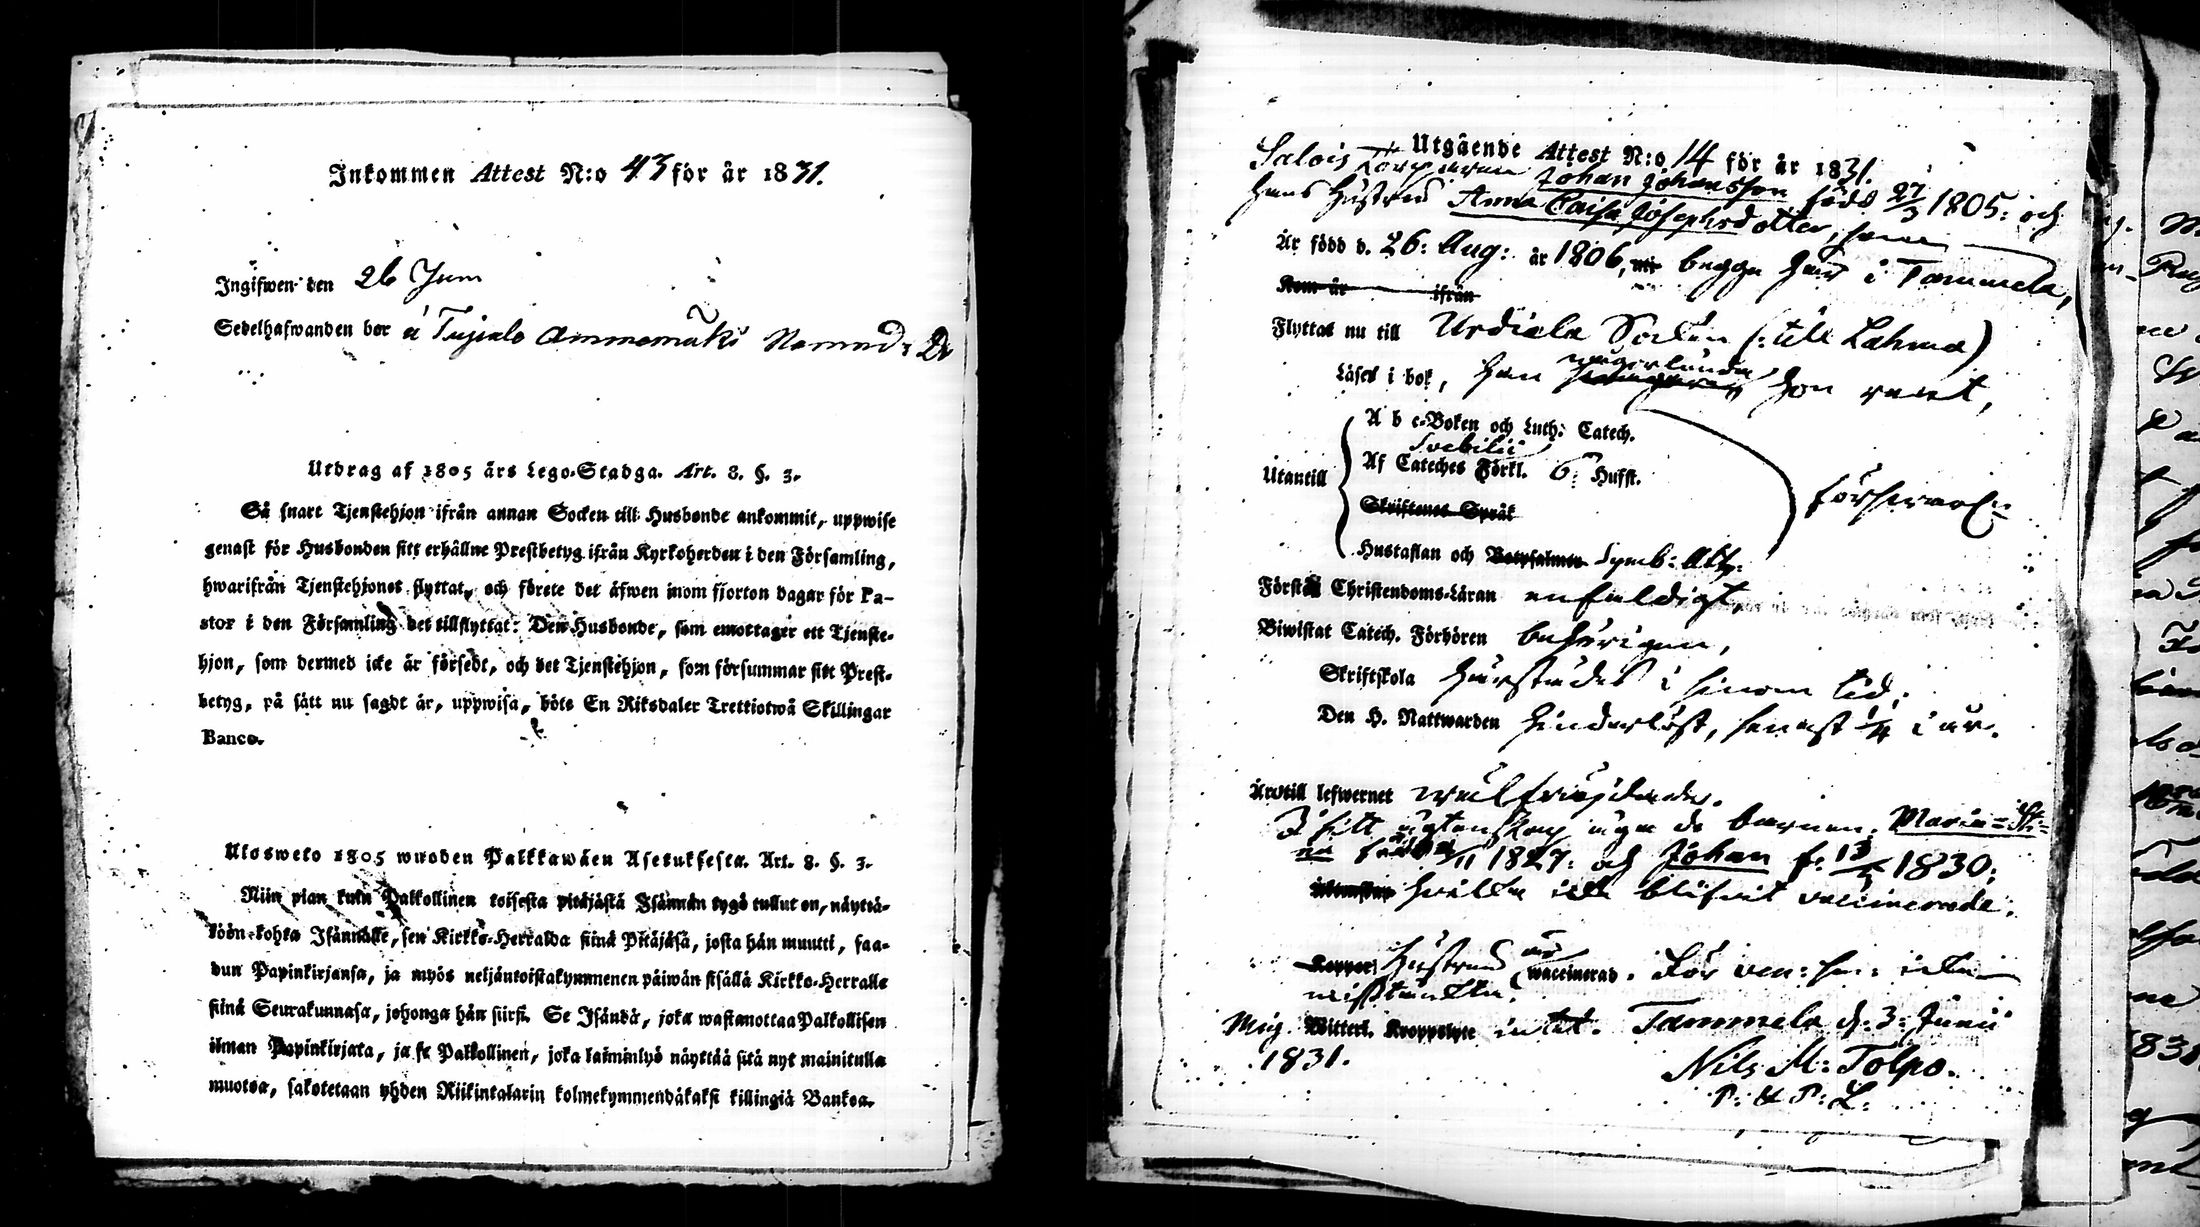 Inkommen Attest N:o 43 för år 1831.
Ingifwen den 26 Juni
Sedelhafwanden bor á
Utdrag af 1805 års Lego-Stadga. Art. 8. §. 3.
Så snart Tjenstehjon ifrån annan Socken till Husbonde ankommit, uppwise
genast för Husbonden sitt erhållne Prestbetyg ifrån Kyrkoherden i den Församling,
hwarifrån Tjenstehjonet flyttat, och förete det äfwen inom fjorton dagar för Pa-
stor i den Församling det tillflyttat: Den Husbonde, som emottager ett Tjenste-
hjon, som dermed icke är försedt, och det Tjenstehjon, som försummar sitt Prest-
betyg, på sätt nu sagdt är, uppwisa, böte En Riksdaler Trettiotwå Skillingar
Banco.
Ulosweto 1805 wuoden Palkkawäen Asetuksesta. Art. 8. §. 3.
Niin pian kuin Palkollinen toisesta pitäjästä Isännän tygö tullut on, näyttä-
köön kohta Isännälle, sen Kirkko-Herralda siinä Pitäjäsä, josta hän muutti, saa-
dun Papinkirjansa, ja myös neljäntoistakymmenen päiwän sisällä Kirkko-Herralle
siinä Seurakunnasa, johonga hän siirsi. Se Isändä, joka wastanottaa Palkollisen
ilman Papinkirjata, ja se Palkollinen, joka laiminlyö näyttää sitä nyt mainitulla
muotoa, sakotetaan yhden Riikintalarin kolmekymmendäkaksi killingiä Bankoa.
Utgående Attest N:o 14 för år 1831.
Salois Torparen Johan Johansson född 27/3 1805: och
hans hustru Anna Caisa Josephsdotter, som
Är född d. 26: Aug: år 1806, begge här i Tammela,
Kom år ifrån
Flyttar nu till Urdiala Socken (: till Lahma)
Läser i bok, han någorlunda hon rent,
A b c-Boken och Luth: Catech.
Svebilii
Utantill Af Cateches Förkl. 6: Hufst. försvarl:n
Skriftenes Språk
Hustaflan och Botpsalmen Symb: Ath:
Förstå Christendoms-Läran enfaldigt,
Biwistat Catech. Förhören behörigen,
Skriftskola härstädes i sinom tid;
Den H. Nattwarden hinderlöst, senast 1/4 i år.
Äro till lefwernet wälfrejdade.
I sitt ägtenskap äga de barnen: Maria Sti=
na född /11 1827: och Johan f: 13/5 1830;
hvilka icke blifvit vaccinerade.
Koppor Hustrun är waccinerad. För
misstänkta.
Mig Witterl. Kroppslyte intet. Tammela d: 3: Junii
1831.
Nils M: Tolpo.
P: & P: L: